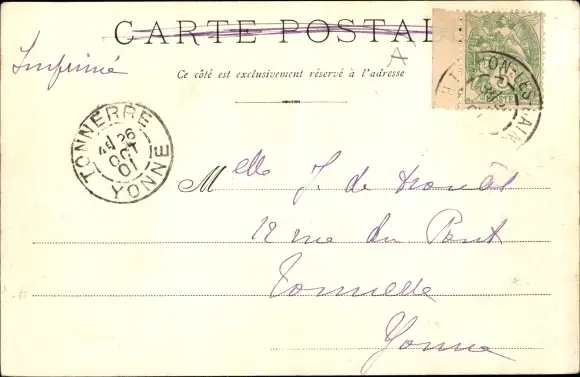 CARTE POSTALE
Imprimé
A
Ce côté est exclusivement réservé à l'adresse
TONNERRE
26
OCT
01
YONNE
Melle J. de
12 rue du Pont
Tonnelle
Yonne